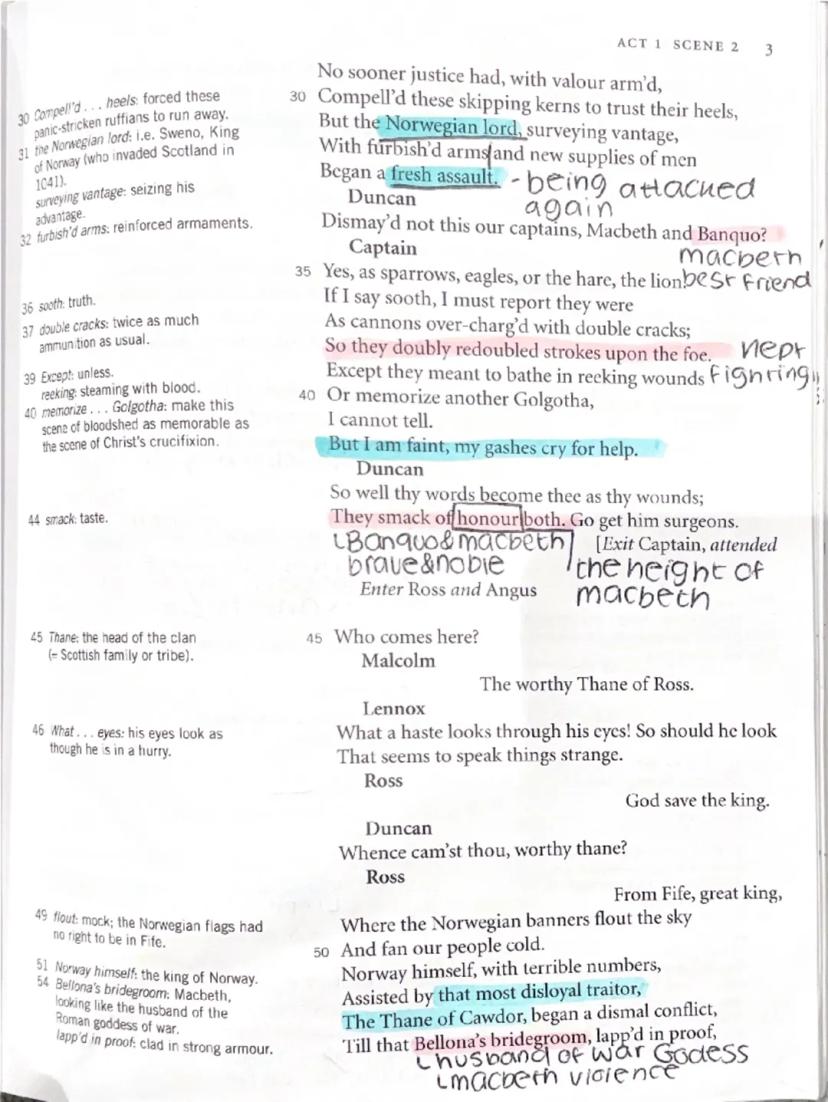 ACT 1 SCENE 2 3
No sooner justice had, with valour arm'd,
30 Compell'd these skipping kerns to trust their heels,
But the Norwegian lord, surveying vantage,
With furbish'd arms and new supplies of men
Began a fresh assault. - being attacked
again
Duncan
Dismay'd not this our captains, Macbeth and Banquo?
macbeth
best friend
Captain
35 Yes, as sparrows, eagles, or the hare, the lion.
If I say sooth, I must report they were
As cannons over-charg'd with double cracks;
So they doubly redoubled strokes upon the foe.
kept
fighting
Except they meant to bathe in reeking wounds
40 Or memorize another Golgotha,
I cannot tell.
But I am faint, my gashes cry for help.
Duncan
So well thy words become thee as thy wounds;
They smack of honour both. Go get him surgeons.
Banquo & macbeth
brave & noble
[Exit Captain, attended
the height of
macbeth
Enter Ross and Angus
45 Who comes here?
Malcolm
The worthy Thane of Ross.
Lennox
What a haste looks through his eyes! So should he look
That seems to speak things strange.
Ross
God save the king.
Duncan
Whence cam'st thou, worthy thane?
Ross
From Fife, great king,
Where the Norwegian banners flout the sky
50 And fan our people cold.
Norway himself, with terrible numbers,
Assisted by that most disloyal traitor,
The Thane of Cawdor, began a dismal conflict,
Till that Bellona's bridegroom, lapp'd in proof,
husband of war Godess
macbeth violence
30 Compell'd . . . heels: forced these
panic-stricken ruffians to run away.
31 the Norwegian lord: i.e. Sweno, King
of Norway (who invaded Scotland in
1041).
surveying vantage: seizing his
advantage.
32 furbish'd arms: reinforced armaments.
36 sooth: truth.
37 double cracks: twice as much
ammunition as usual.
39 Except: unless.
reeking: steaming with blood.
40 memorize . . . Golgotha: make this
scene of bloodshed as memorable as
the scene of Christ's crucifixion.
44 smack: taste.
45 Thane: the head of the clan
(= Scottish family or tribe).
46 What . . . eyes: his eyes look as
though he is in a hurry.
49 flout: mock; the Norwegian flags had
no right to be in Fife.
51 Norway himself: the king of Norway.
54 Bellona's bridegroom: Macbeth,
looking like the husband of the
Roman goddess of war.
lapp'd in proof: clad in strong armour.